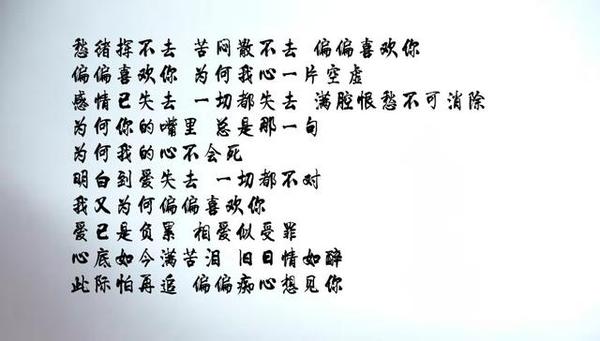 愁绪挥不去 苦闷散不去 偏偏喜欢你
偏偏喜欢你 为何我心一片空虚
感情已失去 一切都失去 满腔恨愁不可消除
为何你的嘴里 总是那一句
为何我的心不会死
明白到爱失去 一切都不对
我又为何偏偏喜欢你
爱已是负累 相爱似受罪
心底如今满苦泪 旧日情如醉
此际怕再追 偏偏痴心想见你